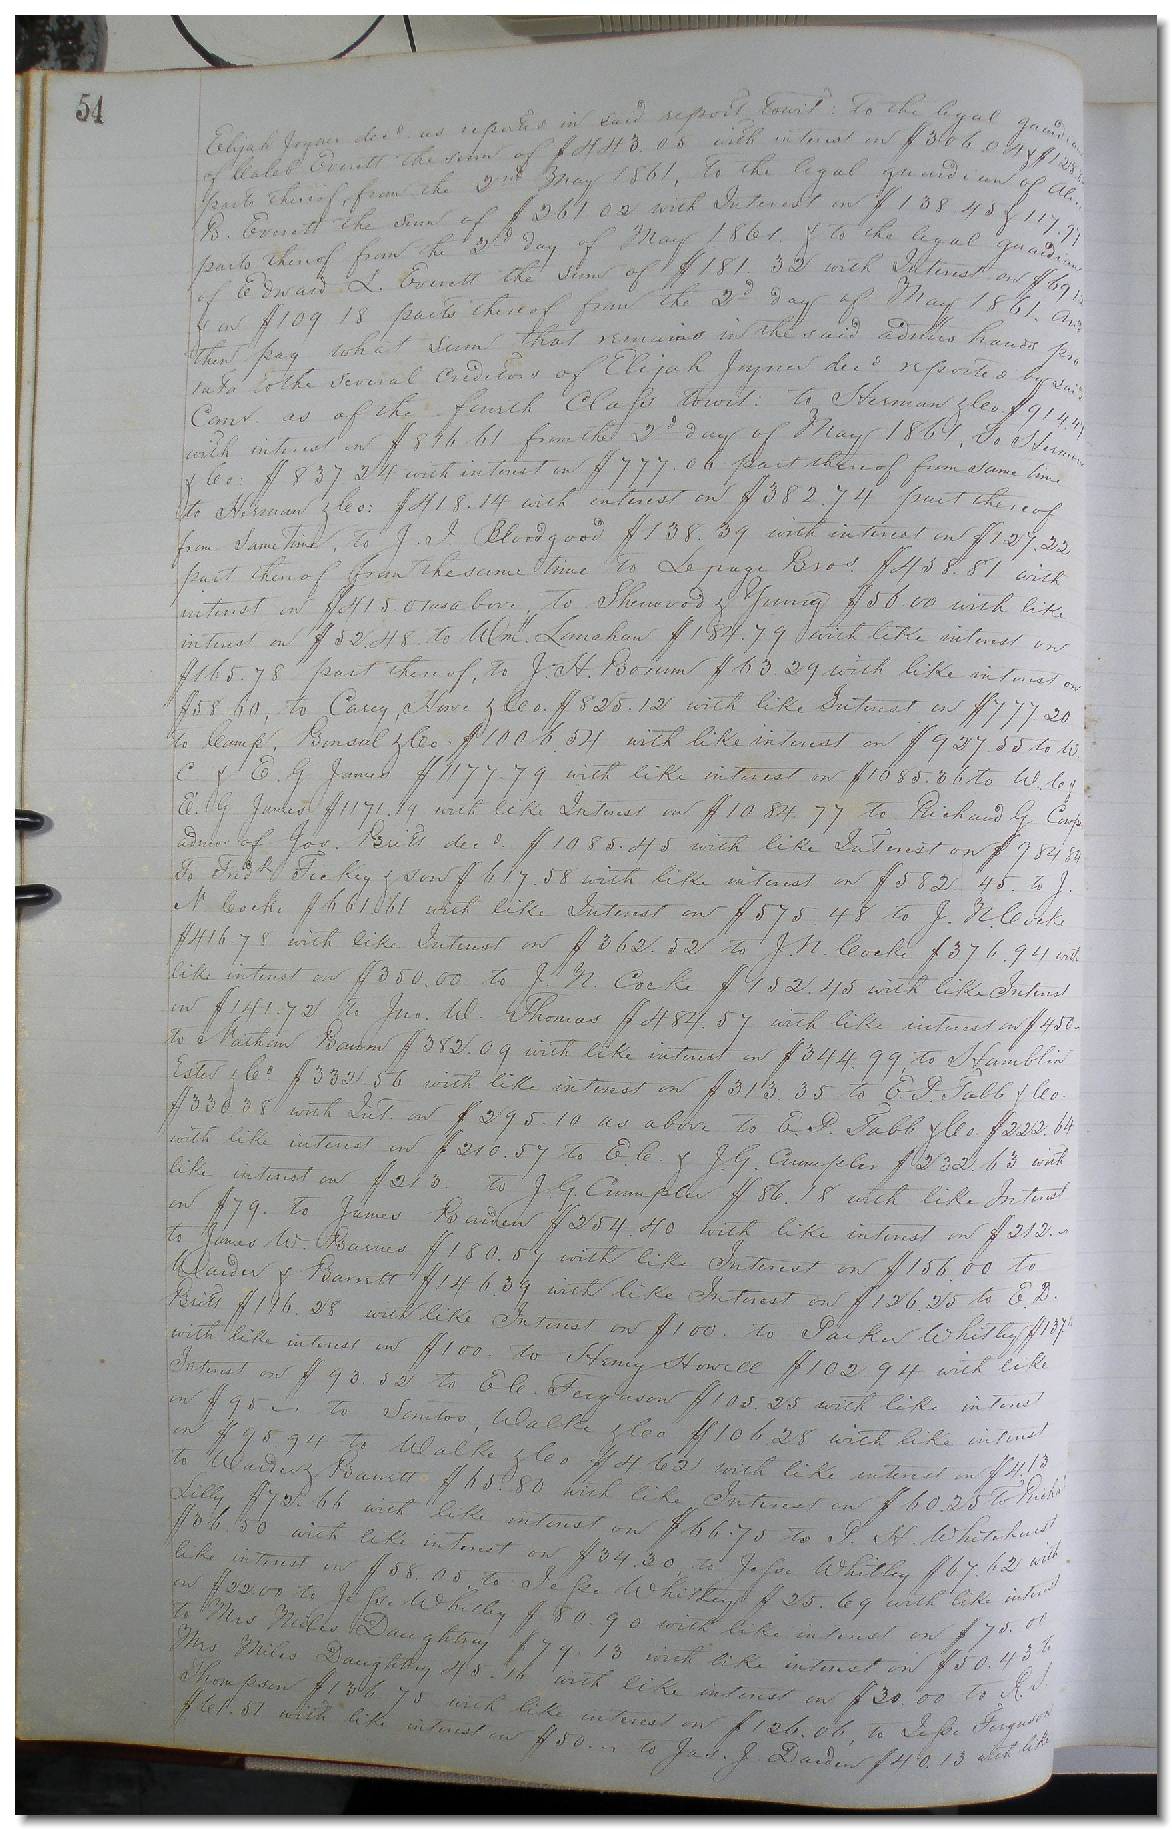 54
Elijah Joyner decd. as reported in said report towit: to the legal guardian
of Caleb Everett the sum of $443.05 with interest on $306.04 &
parts thereof, from the 2nd May 1861, to the legal guardian of
B. Everett the sum of $261 02 with Interest on $138.45 & 117.97
parts thereof from the 2d day of May 1861. & to the legal guardian
of Edward L. Everett the sum of $181.32 with Interest on $69
& on $109 18 parts thereof from the 2d day of May 1861. And
then pay what sum that remains in the said admrs hands pro
rata to the several creditors of Elijah Joyner decd reported by said
Comr. as of the fourth Class towit: to Herman & Co. $914.44
with interest on $846.61 from the 2d day of May 1861, to Herman
& Co: $837 24 with interest on $777.06 part thereof from same time
to Herman & Co: $418.14 with interest on $382.74 part thereof
from Same time, to J. I. Bloodgood $138.39 with interest on $127.22
part thereof from the same time to Lepage Bros. $458.81 with
interest on $415.01 as above, to Sherwood & Young $56.00 with like
interest on $52.48 to Wm. Lenahan $184.79 with like interest on
$165.78 part thereof, to J. H. Borum $63 29 with like interest on
$58 60, to Carey, Howe & Co. $825.12 with like Interest on $777 20
to Camp, Bonsal & Co. $1006.54 with like interest on $927.55 to W.
C. & E. G James $1177.79 with like interest on $1085.36 to W. C &
E. G James $1171.19 with like Interest on $1084.77 to Richard G. Camp
admr of Joo. Britt decd. $1085.45 with like Interest on $984 84
To Fredk Fickey & son $617.58 with like interest on $582 45. to J.
N Cocke $661.61 with like Interest on $575.48 to J. N. Cocke
$416 78 with like Interest on $362.52 to J. N. Cocke $376.94 with
like interest on $350.00 to J. N. Cocke $152.45 with like Interest
on $141.72 to Jno. W. Thomas $484.57 with like interest on $450-
to Nathan Bawm $382.09 with like interest on $344.99, to Hamblin
Estes & Co $332 56 with like interest on $313.35 to E. P. Tabb & Co.
$330 38 with Int. on $295.10 as above to E. P. Tabb & Co $222.64
with like interest on $210.57 to E. C. & J. G. Crumpler $232 63 with
like interest on $213 to J. G. Crumpler $86.18 with like Interest
on $79. to James Bowden $254.40 with like interest on $212.
to James W. Barnes $180.57 with like Interest on $156.00 to
Warder & Barrett $146.39 with like Interest on $126.25 to E. D.
Britt $116.28 with like Interest on $100. to Parker Whitley $137
with like interest on $100. to Henry Howell $102 94 with like
Interest on $93.52 to E. C. Ferguson $105.25 with like interest
on $95 to Santos, Walke & Co $106.28 with like interest
on $98 94 to Walke & Co $4 62 with like interest on $4.13
to Warder & Barrett $65.80 with like Interest on $60.25 to Richd
Lilly $72.66 with like interest on $66.75 to P. H. Whitehurst
$36.50 with like interest on $34.20, to Jesse Whitley $67.62 with
like interest on $58.05 to Jesse Whitley $25.69 with like interest
on $22 00 to Jesse Whitley $80.90 with like interest on $75.00
to Mrs Miles Daughtrey $79.13 with like interest on $50.43 to
Mrs Miles Daughtrey 45.16 with like interest on $30.00 to R. S.
Thompson $136.75 with like interest on $126.06, to Jesse Ferguson
$61.51 with like interest on $50. to Jas. J. Darden $40.13 with like